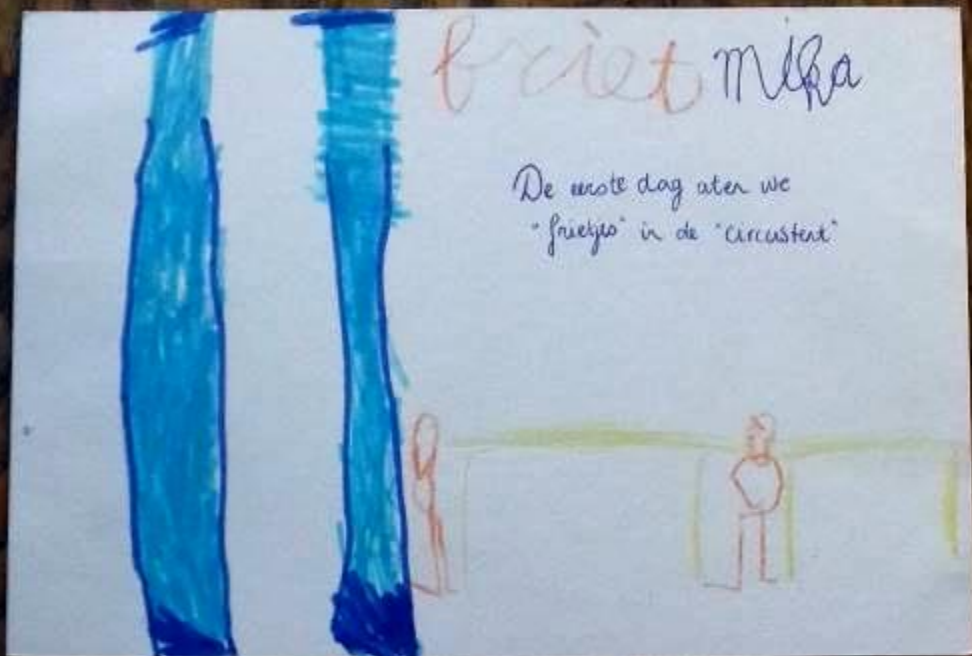 friet mika
De eerste dag aten we
"frietjes" in de "circustent"